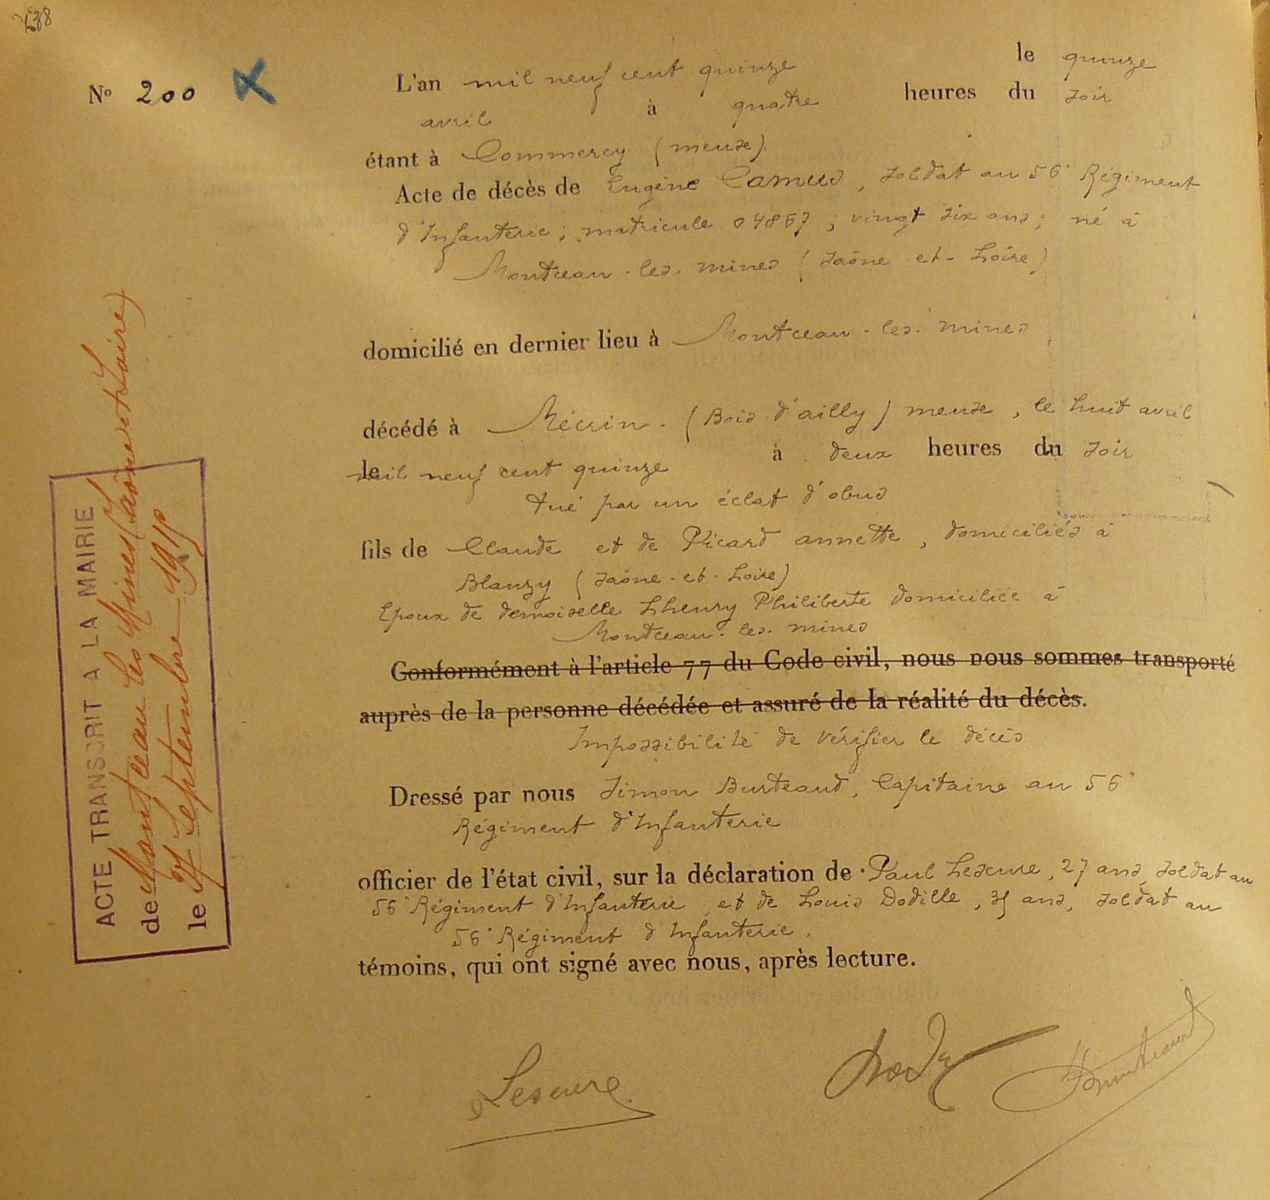 Nº 200
L'an mil neuf cent quinze le quinze
avril à quatre heures du soir
étant à Commercy (meuse)
Acte de décès de Eugène Camus, soldat au 56e Régiment
d'Infanterie; matricule 04867; vingt six ans; né à
Montceau-les-mines (Saône-et-Loire)
domicilié en dernier lieu à Montceau-les-mines
décédé à Mécrin. (Bois d'ailly) meuse, le huit avril
mil neuf cent quinze à deux heures du soir
tué par un éclat d'obus
fils de Claude et de Picard annette, domiciliés à
Blanzy (Saône-et-Loire)
Epoux de demoiselle Lhenry Philiberte domiciliée à
Montceau-les-mines
Conformément à l'article 77 du Code civil, nous nous sommes transporté
auprès de la personne décédée et assuré de la réalité du décès.
Impossibilité de vérifier le décès
Dressé par nous Simon Burteaud, Capitaine au 56e
Régiment d'Infanterie
officier de l'état civil, sur la déclaration de Paul Lescure, 27 ans, soldat au
56e Régiment d'Infanterie, et de Louis Dodille, ans, soldat au
56e Régiment d'Infanterie.
témoins, qui ont signé avec nous, après lecture.
Lescure
Burteaud
ACTE TRANSCRIT A LA MAIRIE
de Montceau les Mines (Saône et Loire)
le 27 Septembre 1915